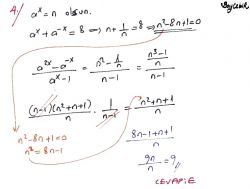 4) aˣ = n olsun.
aˣ + a⁻ˣ = 8 ⟹ n + 1/n = 8 ⟹ n² - 8n + 1 = 0
(a²ˣ - a⁻ˣ)/(aˣ - 1) = (n² - 1/n)/(n - 1) = ((n³ - 1)/n)/(n - 1)
((n-1)(n²+n+1))/n · 1/(n-1) = (n²+n+1)/n
n² - 8n + 1 = 0
n² = 8n - 1
(8n - 1 + n + 1)/n
9n/n = 9
CEVAP: E